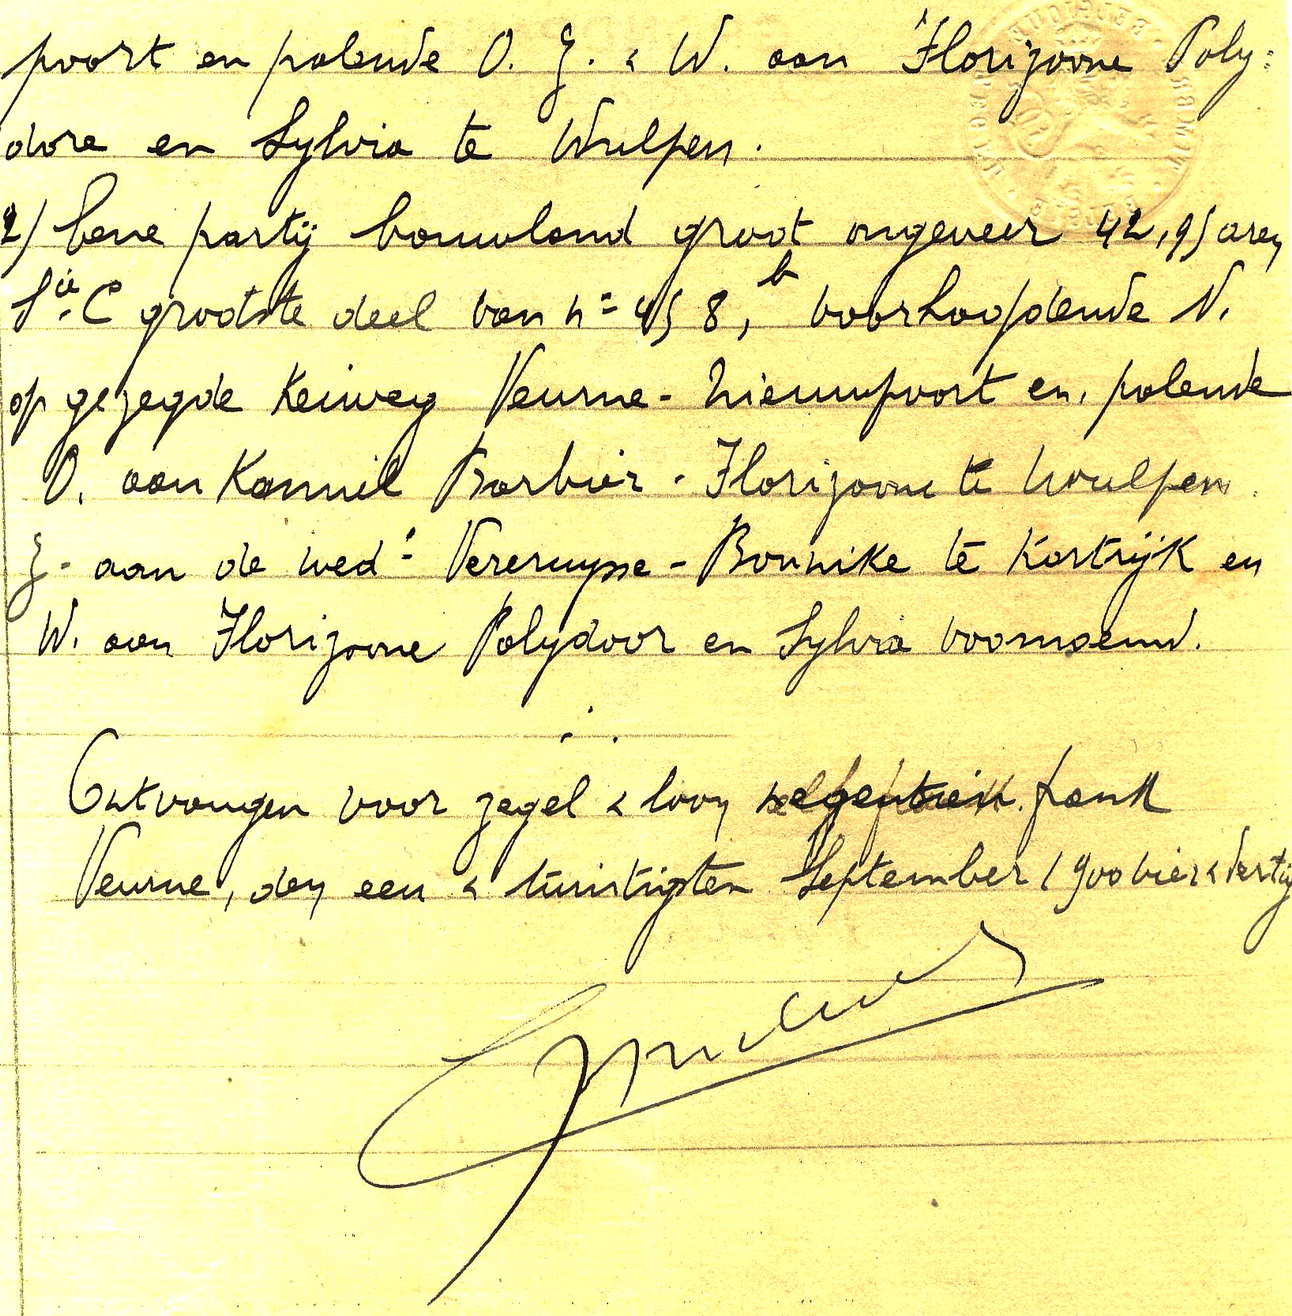 poort en palende O. Z. & W. aan Florizoone Poly:
dore en Sylvia te Wulpen.
2) Eene partij bouwland groot ongeveer 42,95 aren
Sie. C grootste deel van n= 458b, voorhoofdende N.
op gezegde Keiweg Veurne-Nieuwpoort en, palende
O. aan Kamiel Barbier - Florizoone te Wulpen.
Z. aan de wede Vereruysse - Bonnike te Kortrijk en
W. aan Florizoone Polydoor en Sylvia voornoemd.
Ontvangen voor zegel & loon frank
Veurne, den een & twintigsten September 1900 vier & veertig